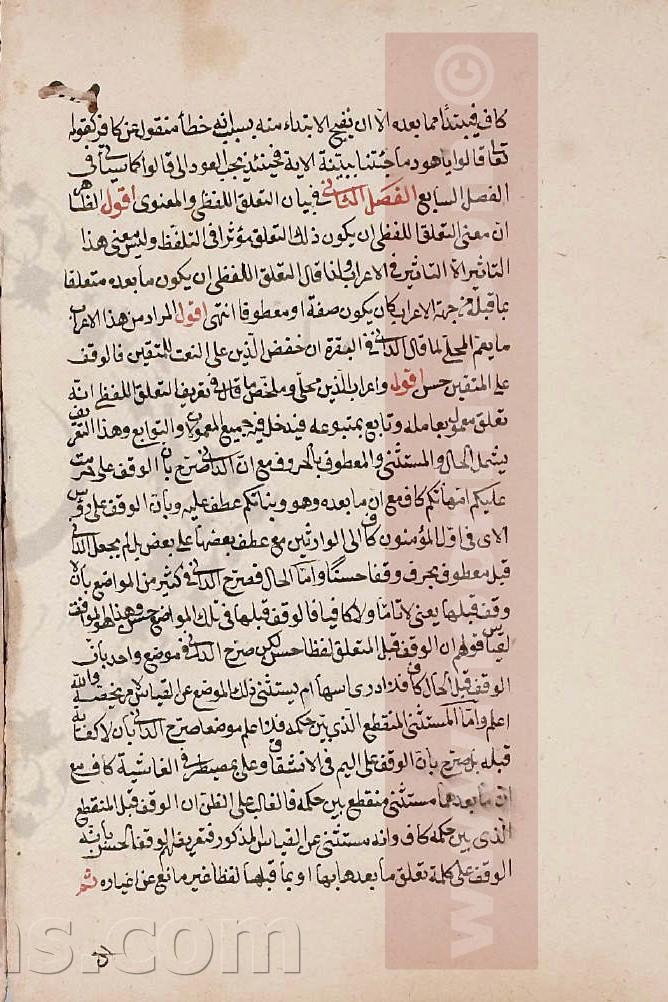 كاف فيبتدأ مما بعده الا ان يقبح الابتداء منه بسبب انه خطأ منقول عن كافر كقوله
تعالى قالوا يا هود ما جئتنا ببينة الاية فحينئذ يجب العود الى قالوا كما سيأتى فى
الفصل السابع الفصل الثانى فى بيان التعلق اللفظى والمعنوى اقول الظاهر
ان معنى التعلق اللفظى ان يكون ذلك التعلق مؤثرا فى التلفظ وليس معنى هذا
التاثير الا التاثير فى الاعراب ولذا قال التعلق اللفظى ان يكون ما بعده متعلقا
بما قبله من جهة الاعراب كان يكون صفة او معطوفا انتهى اقول المراد من هذا الاعراب
ما يعم المحلى لما قال الدانى فى البقرة ان خفض الذين على النعت للمتقين فالوقف
على المتقين حسن اقول واعراب الذين محلى وملخص ما قال فى تعريف التعلق اللفظى انه
تعلق معمول بعامله وتابع بمتبوعه فيدخل فيه جميع المعمولات والتوابع وهذا التعريف
يشمل الحال والمستثنى والمعطوف بالحروف مع ان الدانى صرح بان الوقف على حرمت
عليكم امهاتكم كاف مع ان ما بعده وهو وبناتكم عطف عليه وبان الوقف على رؤس
الاى فى اول المؤمنون كاف الى الوارثين مع عطف بعضها على بعض بل لم يجعل الدانى
قبل معطوف بحرف وقفا حسنا واما الحال فصرح الدانى فى كثير من المواضع بان لا
وقف قبلها يعنى لا تاما ولا كافيا فالوقف قبلها فى تلك المواضع حسن وهذا هو الموافق
لقياس قولهم ان الوقف قبل المتعلق لفظا حسن لكن صرح الدانى فى موضع واحد بان
الوقف قبل الحال كاف فلا ادرى اسها ام يستثنى ذلك الموضع عن القياس لامر يخصه والله
اعلم واما المستثنى المنقطع الذى بين حكمه فلا اعلم موضعا صرح الدانى بان لا كفاية
قبله بل صرح بان الوقف على اليم فى الانشقاق وعلى بمصيطر فى الغاشية كاف مع
ان ما بعدهما مستثنى منقطع بين حكمه فالغالب على الظن ان الوقف قبل المنقطع
الذى بين حكمه كاف وانه مستثنى عن القياس المذكور فتعريفهم الوقف الحسن بانه
الوقف على كلمة تعلق ما بعدها بها او بما قبلها لفظا غير مانع عن اغياره ثم